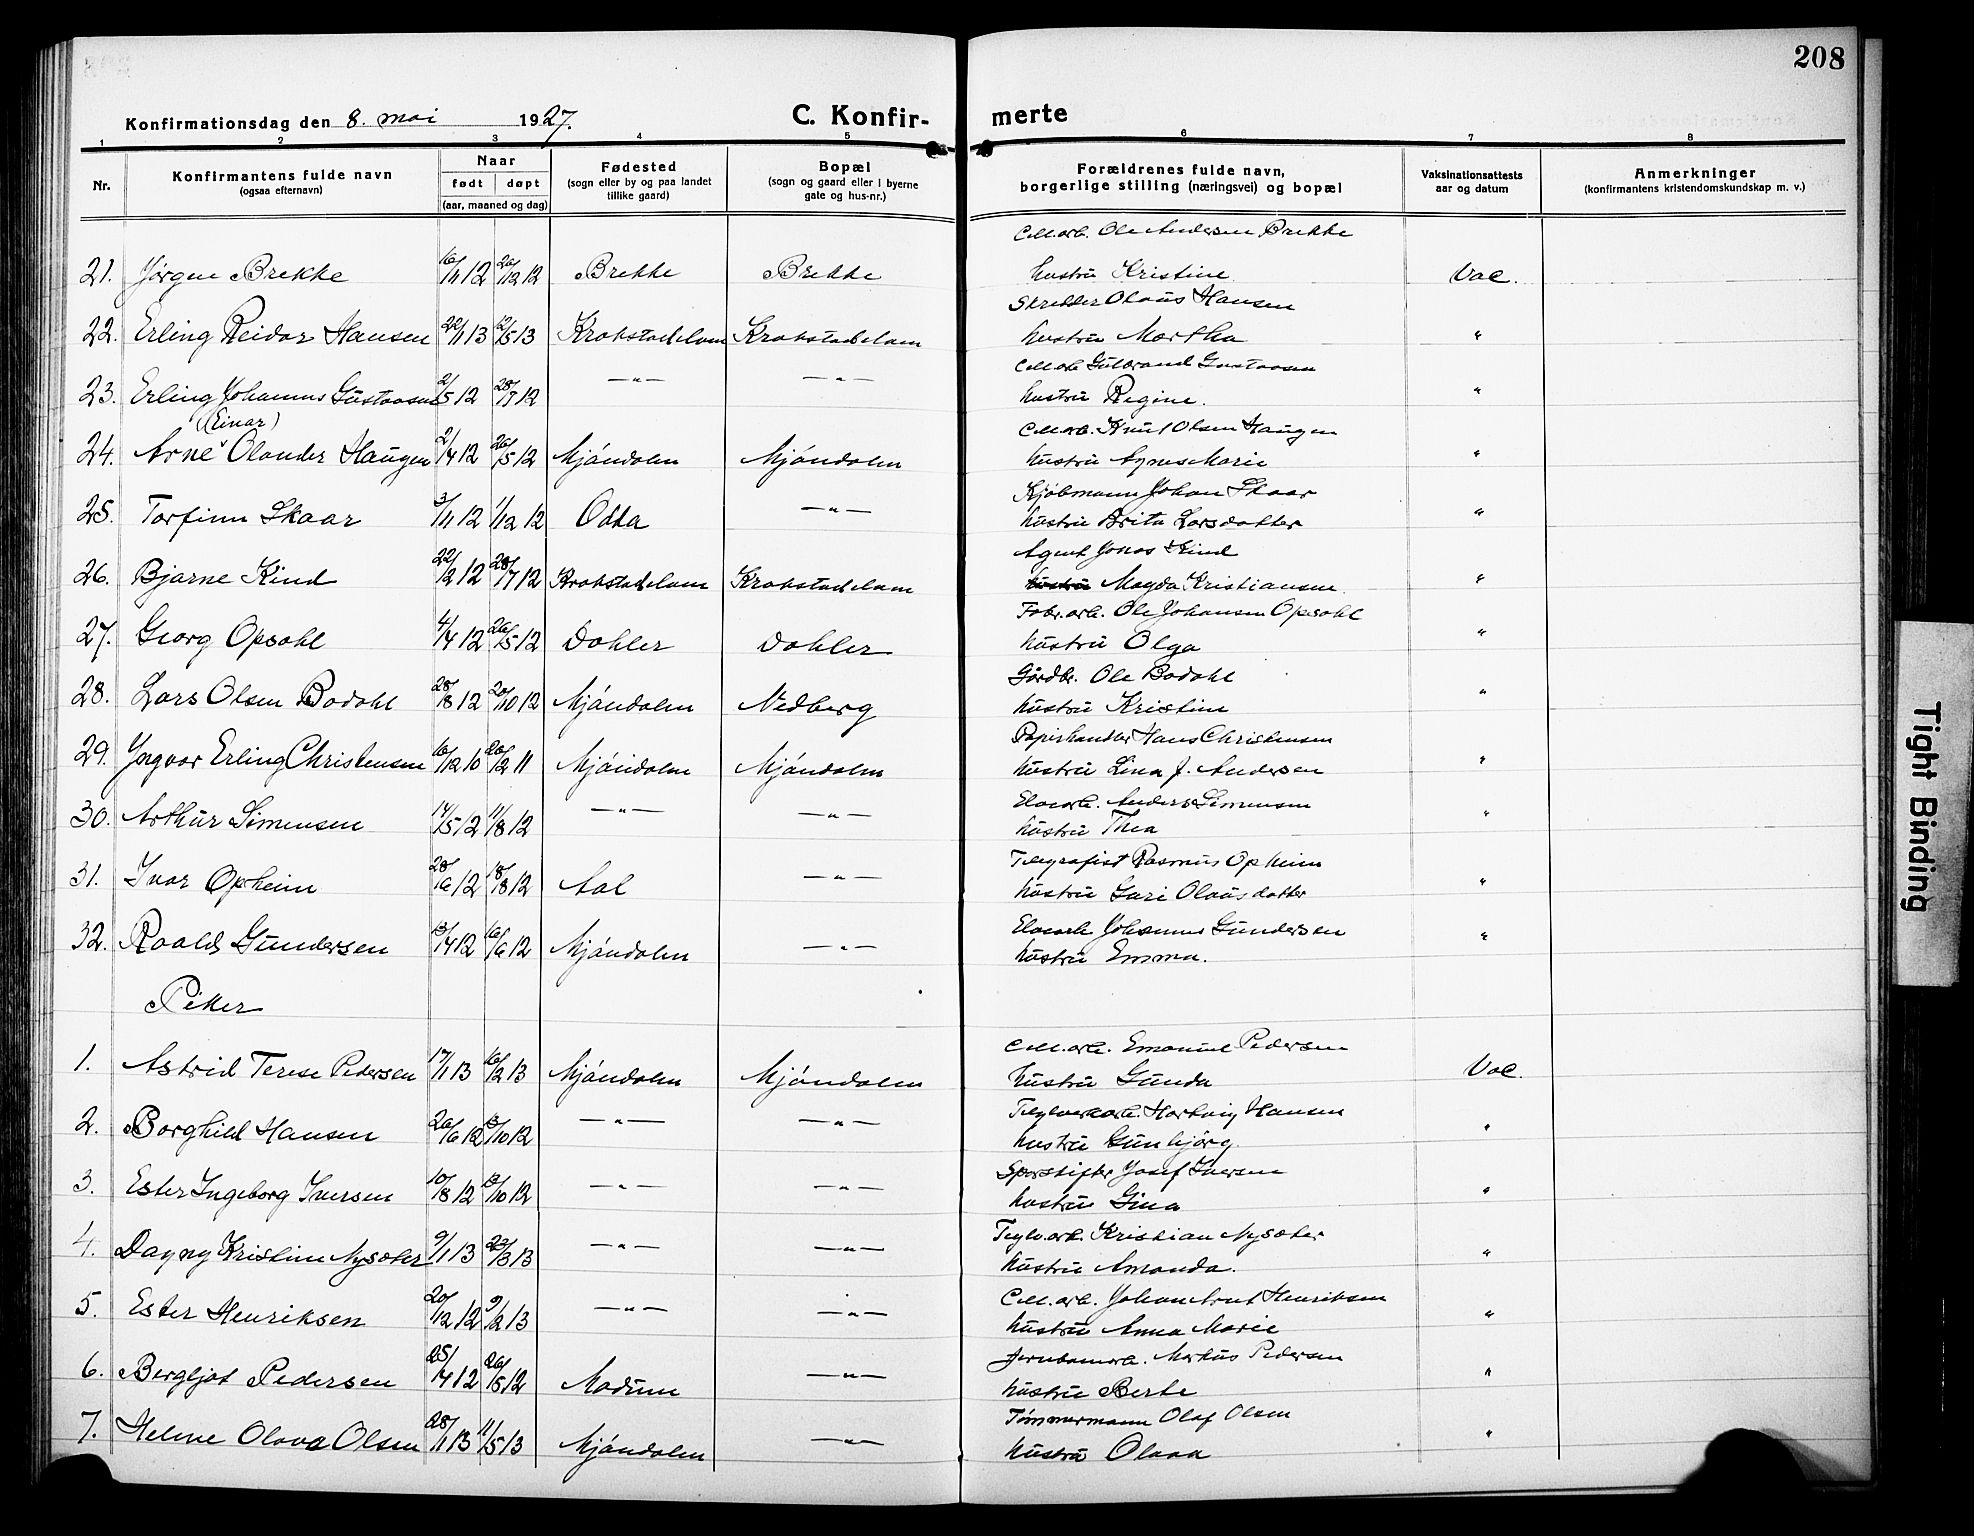 208
Konfirmationsdag den 8. mai 1927. C. Konfir- merte
1 2 3 4 5 6 7 8
Nr. Konfirmantens fulde navn (ogsaa efternavn) Naar født døpt (aar, maaned og dag) Fødested (sogn eller by og paa landet tillike gaard) Bopæl (sogn og gaard eller i byerne gate og hus-nr.) Forældrenes fulde navn, borgerlige stilling (næringsvei) og bopæl Vaksinationsattests aar og datum Anmerkninger (konfirmantens kristendomskundskap m. v.)
Cell.arb. Ole Andersen Brekke
21. Jørgen Brekke 16/11 12 26/12 12 Brekke Brekke hustru Kristine Vac.
Skredder Olaus Hansen
22. Erling Reidar Hansen 22/1 13 12/5 13 Krokstadelven Krokstadelven hustru Martha "
Cell.arb. Guldbrand Gustavsen
23. Erling Johannes Gustavsen 2/5 12 28/7 12 —"— —"— hustru Regine. "
(Einar)
Cell.arb. Knut Olsen Haugen
24. Arne ˅ Olander Haugen 2/4 12 26/5 12 Mjøndalen Mjøndalen hustru Agnes Marie "
Kjøbmann Johan Skaar
25. Torfinn Skaar 3/11 12 1/12 12 Odda —"— hustru Brita Larsdatter "
Agent Jonas Kind
26. Bjarne Kind 22/2 12 28/7 12 Krokstadelven Krokstadelven hustru Magda Kristiansen. "
Fabr.arb. Ole Johansen Opsahl
27. Georg Opsahl 4/4 12 26/5 12 Dahler Dahler hustru Olga "
Gårdbr. Ole Badahl
28. Lars Olsen Badahl 28/8 12 20/10 12 Mjøndalen Nedberg hustru Kristine "
Papirhandler Hans Christensen
29. Yngvar Erling Christensen 16/12 10 26/2 11 Mjøndalen Mjøndalen hustru Lina J. Andersen "
Elvearb. Anders Simensen
30. Arthur Simensen 14/5 12 11/8 12 —"— —"— hustru Thea "
Telegrafist Rasmus Opheim
31. Ivar Opheim 28/6 12 18/8 12 Aal —"— hustru Guri Olausdatter "
Elvearb Johannes Gundersen
32. Roald Gundersen 13/4 12 16/6 12 Mjøndalen —"— hustru Emma. "
Piker
Cell.arb. Emanuel Pedersen
1. Astrid Terese Pedersen 17/1 13 16/2 13 Mjøndalen Mjøndalen hustru Gunda Vac.
Teglverkarb. Hartvig Hansen
2. Borghild Hansen 26/6 12 13/10 12 —"— —"— hustru Gunbjørg. "
Sporskifter Josef Iversen
3. Ester Ingeborg Iversen 10/8 12 13/10 12 —"— —"— hustru Gina "
Teglv.arb. Kristian Nysæter
4. Dagny Kristine Nysæter 9/1 13 23/3 13 —"— —"— hustru Amanda. "
Cell.arb. Johan Arnt Henriksen
5. Ester Henriksen 20/12 12 9/2 13 —"— —"— hustru Anna Marie "
Jernbanearb. Markus Pedersen
6. Bergljot Pedersen 25/4 12 26/5 12 Modum —"— hustru Berte "
Tømmermann Olaf Olsen
7. Helene Olava Olsen 28/1 13 11/5 13 Mjøndalen —"— hustru Olava "
Tight Binding